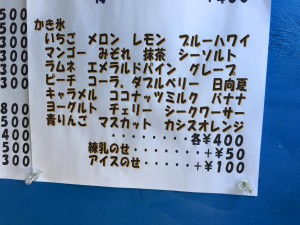 500
500
300
500
300
800
500
400
500
300
かき氷
いちご メロン レモン ブルーハワイ
マンゴー みぞれ 抹茶 シーソルト
ラムネ エメラルドパイン グレープ
ピーチ コーラ ダブルベリー 日向夏
キャラメル ココナッツミルク バナナ
ヨーグルト チェリー シークワーサー
青りんご マスカット カシスオレンジ
・・・・・・・各¥400
練乳のせ・・・・・・+¥50
アイスのせ・・・・・+¥100